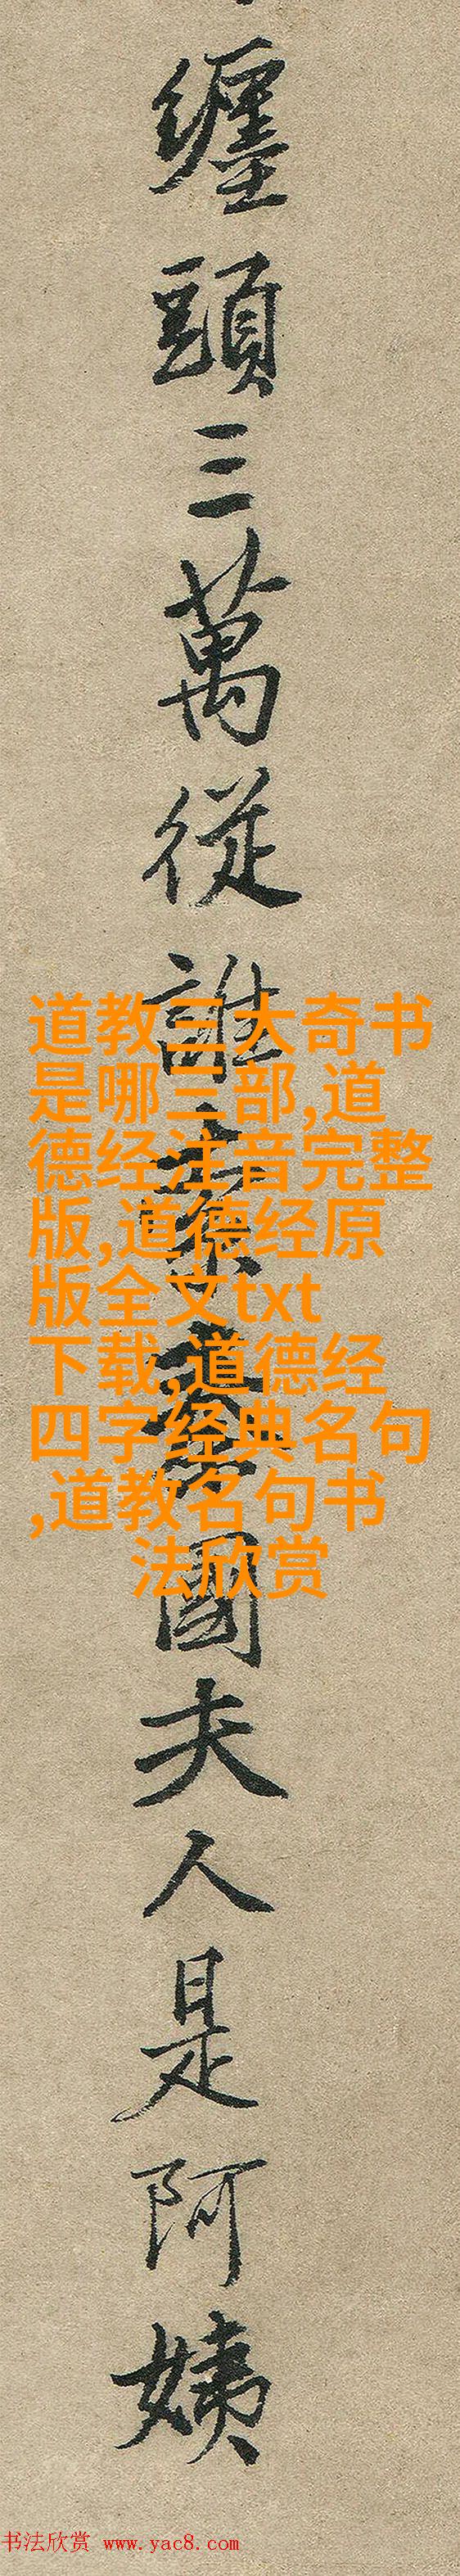 纏頭三萬從誰索秦國夫人是阿姨
道教三大奇书
是哪三部,道
德经注音完整
版,道德经原
版全文txt
下载,道德经
四字经典名句
,道教名句书
法欣赏
书法欣赏 www.yac8.com